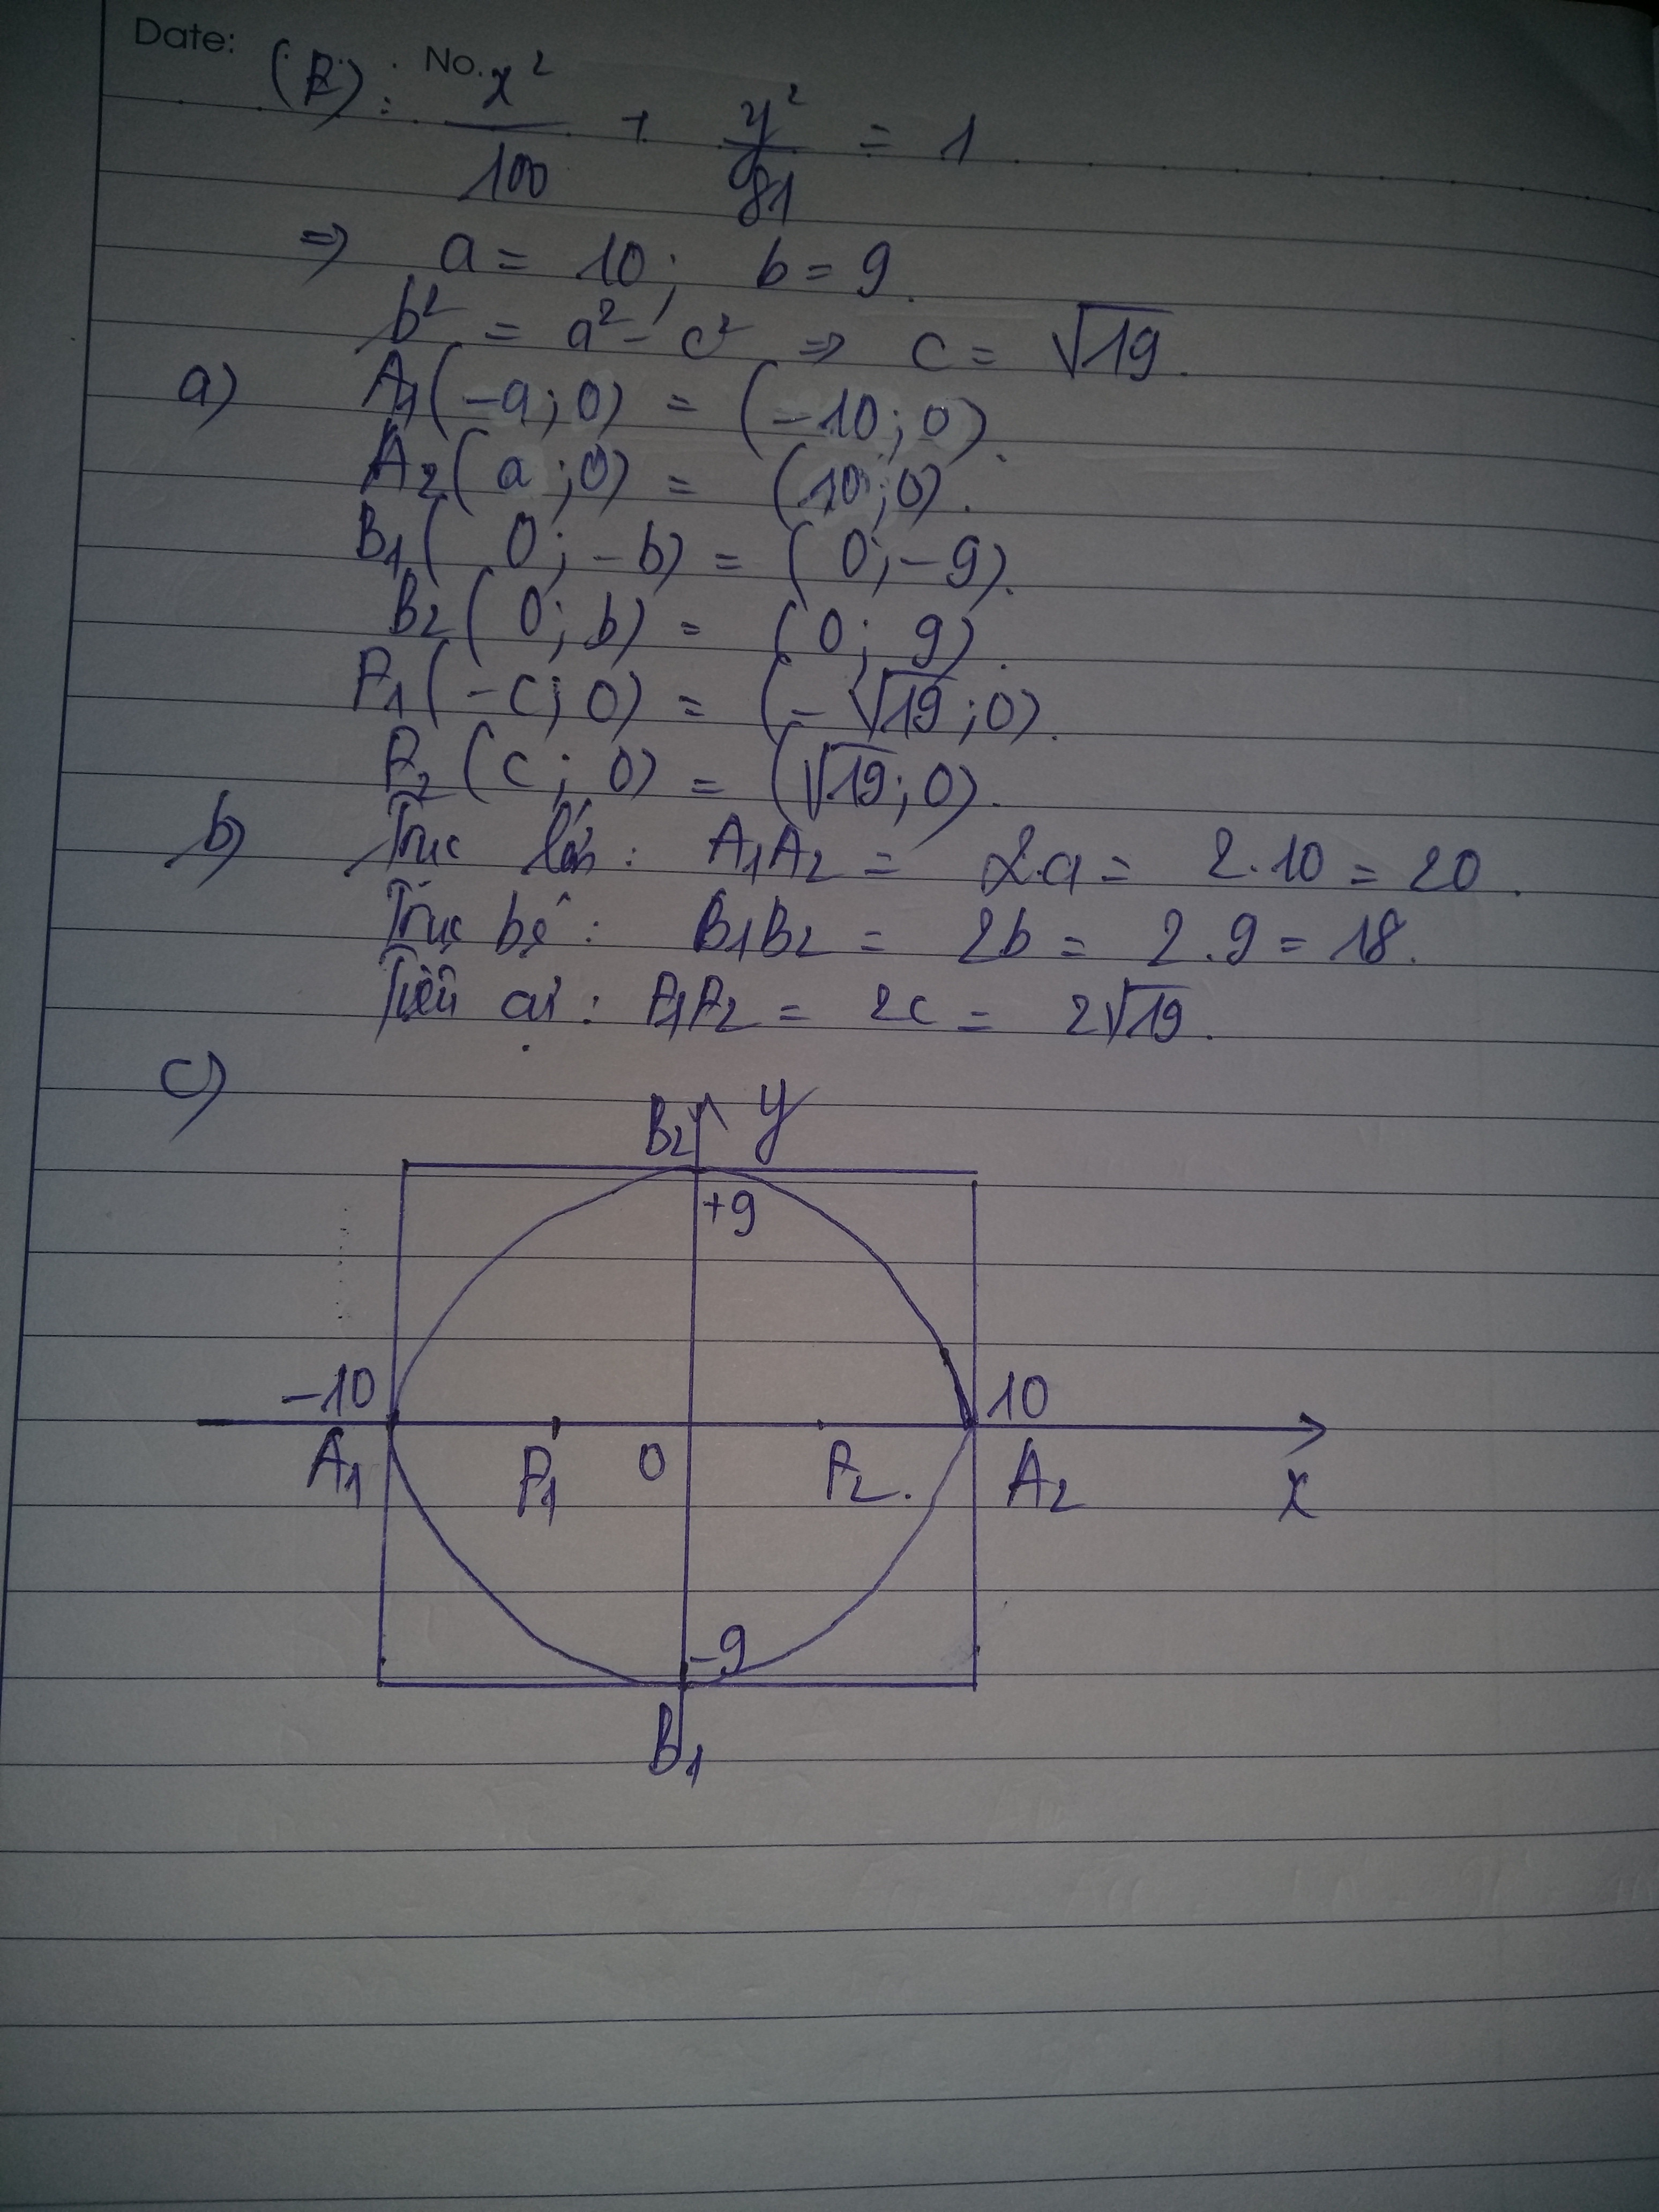 Date: No.
(E): x²/100 + y²/81 = 1
⇒ a = 10; b = 9.
b² = a² - c² ⇒ c = √19.
a) A₁(-a; 0) = (-10; 0).
A₂(a; 0) = (10; 0).
B₁(0; -b) = (0; -9).
B₂(0; b) = (0; 9).
F₁(-c; 0) = (-√19; 0).
F₂(c; 0) = (√19; 0).
b) Trục lớn: A₁A₂ = 2.a = 2.10 = 20.
Trục bé: B₁B₂ = 2b = 2.9 = 18.
Tiêu cự: F₁F₂ = 2c = 2√19.
c)
B₂ y
+9
-10 10
A₁ F₁ 0 F₂. A₂ x
-9
B₁